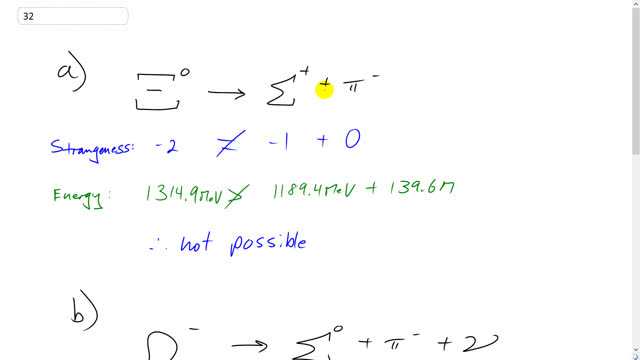 32
a) Ξ⁰ → Σ⁺ + π⁻
Strangeness: -2 ≠ -1 + 0
Energy: 1314.9MeV ≯ 1189.4MeV + 139.6M
∴ not possible
b) D⁻ → Σ⁰ + π⁻ + ν